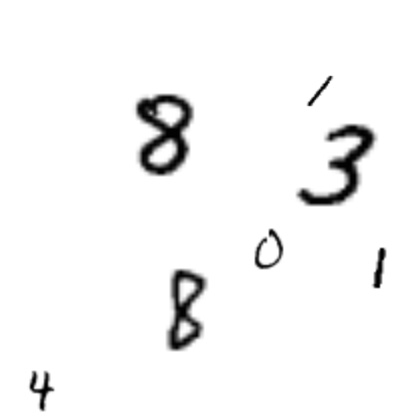 1
8
3
0
1
8
4